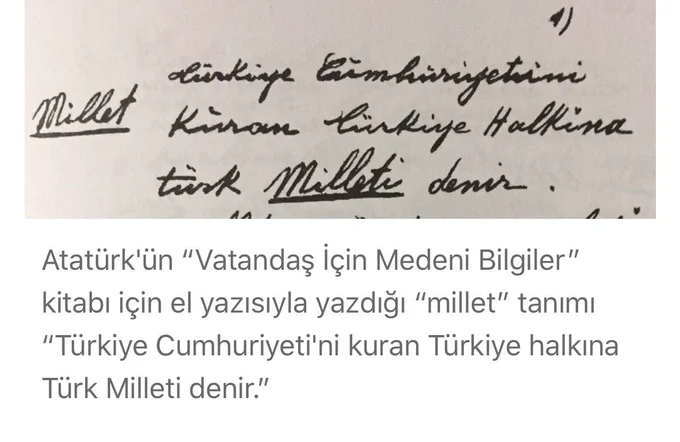 1)
Türkiye Cümhüriyetini
Millet Küran Türkiye Halkına
türk Milleti denir.
Atatürk'ün “Vatandaş İçin Medeni Bilgiler”
kitabı için el yazısıyla yazdığı “millet” tanımı
“Türkiye Cumhuriyeti'ni kuran Türkiye halkına
Türk Milleti denir.”